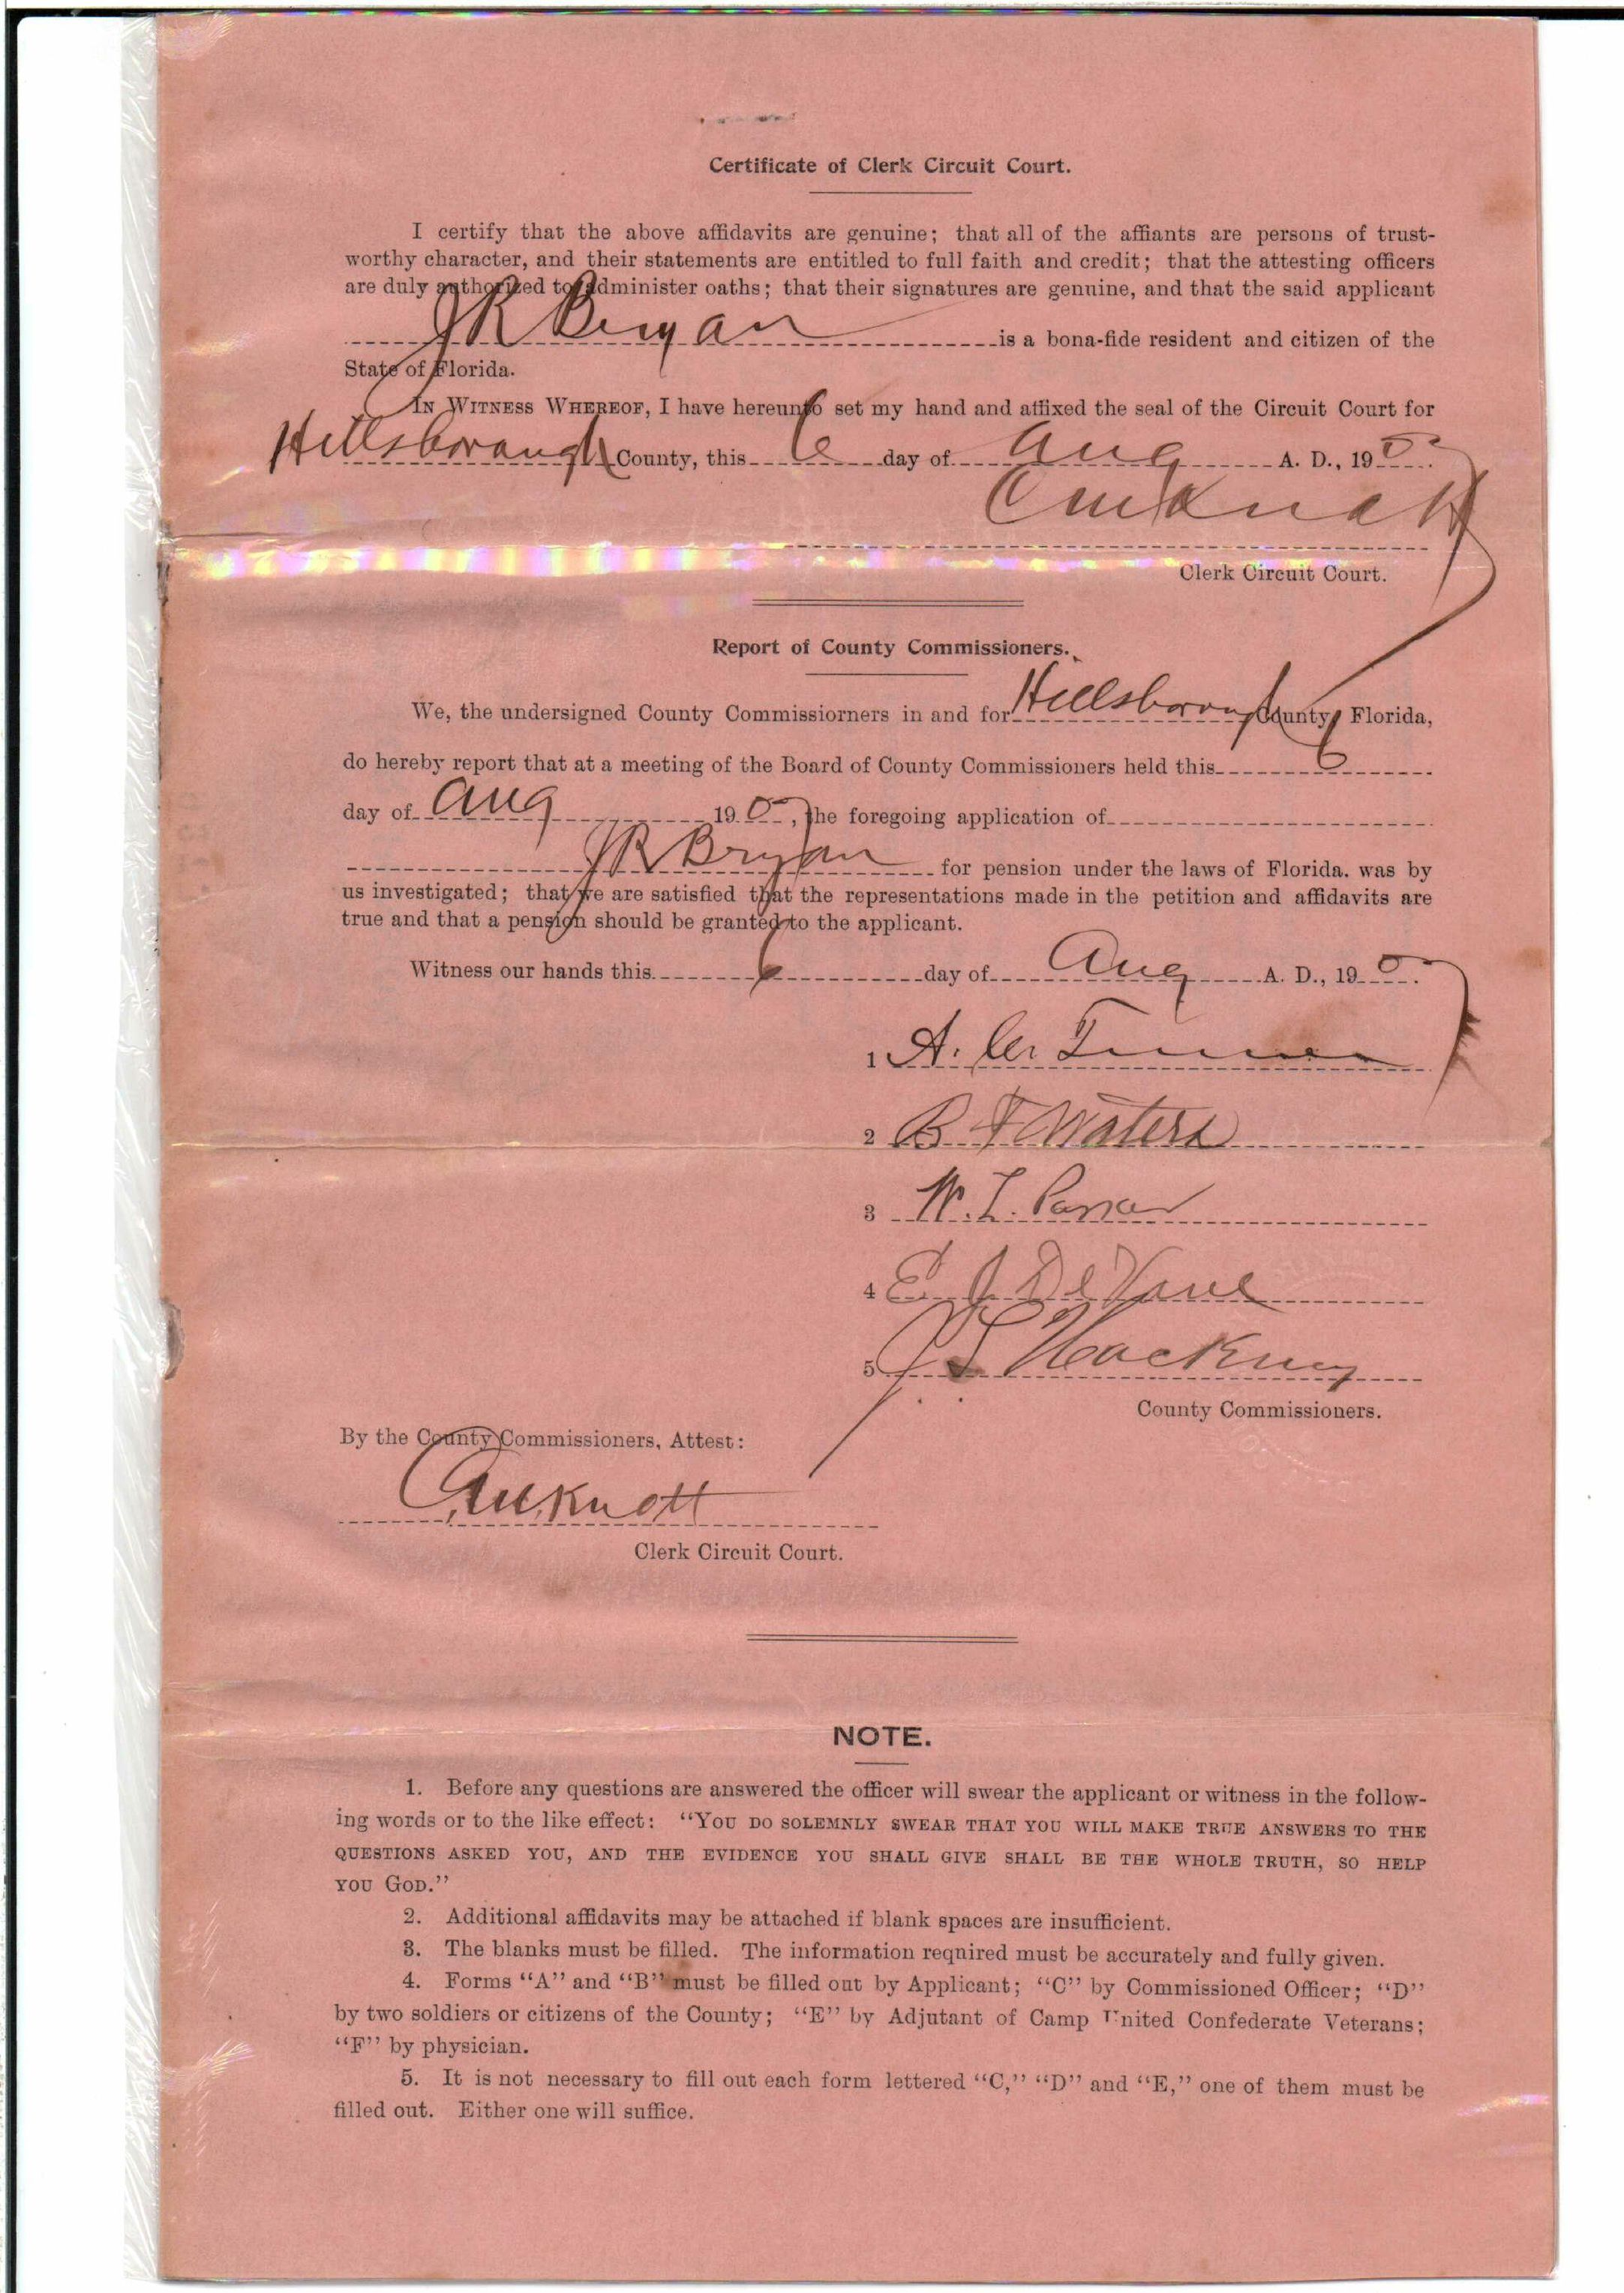 Certificate of Clerk Circuit Court.
I certify that the above affidavits are genuine; that all of the affiants are persons of trust-
worthy character, and their statements are entitled to full faith and credit; that the attesting officers
are duly authorized to administer oaths; that their signatures are genuine, and that the said applicant
J R Bryan is a bona-fide resident and citizen of the
State of Florida.
IN WITNESS WHEREOF, I have hereunto set my hand and affixed the seal of the Circuit Court for
Hillsborough County, this 6 day of Aug A. D., 1907.
C M Knott
Clerk Circuit Court.
Report of County Commissioners.
We, the undersigned County Commissiorners in and for Hillsborough County, Florida,
do hereby report that at a meeting of the Board of County Commissioners held this 6
day of Aug 1907, the foregoing application of
J R Bryan for pension under the laws of Florida. was by
us investigated; that we are satisfied that the representations made in the petition and affidavits are
true and that a pension should be granted to the applicant.
Witness our hands this 6 day of Aug A. D., 1907.
1 A.
2 B F Waters
3 W. L. Parker
4 E J DeVane
5 Hackney
County Commissioners.
By the County Commissioners, Attest:
C M Knott
Clerk Circuit Court.
NOTE.
1. Before any questions are answered the officer will swear the applicant or witness in the follow-
ing words or to the like effect: “YOU DO SOLEMNLY SWEAR THAT YOU WILL MAKE TRUE ANSWERS TO THE
QUESTIONS ASKED YOU, AND THE EVIDENCE YOU SHALL GIVE SHALL BE THE WHOLE TRUTH, SO HELP
YOU GOD.”
2. Additional affidavits may be attached if blank spaces are insufficient.
3. The blanks must be filled. The information required must be accurately and fully given.
4. Forms “A” and “B” must be filled out by Applicant; “C” by Commissioned Officer; “D”
by two soldiers or citizens of the County; “E” by Adjutant of Camp United Confederate Veterans;
“F” by physician.
5. It is not necessary to fill out each form lettered “C,” “D” and “E,” one of them must be
filled out. Either one will suffice.